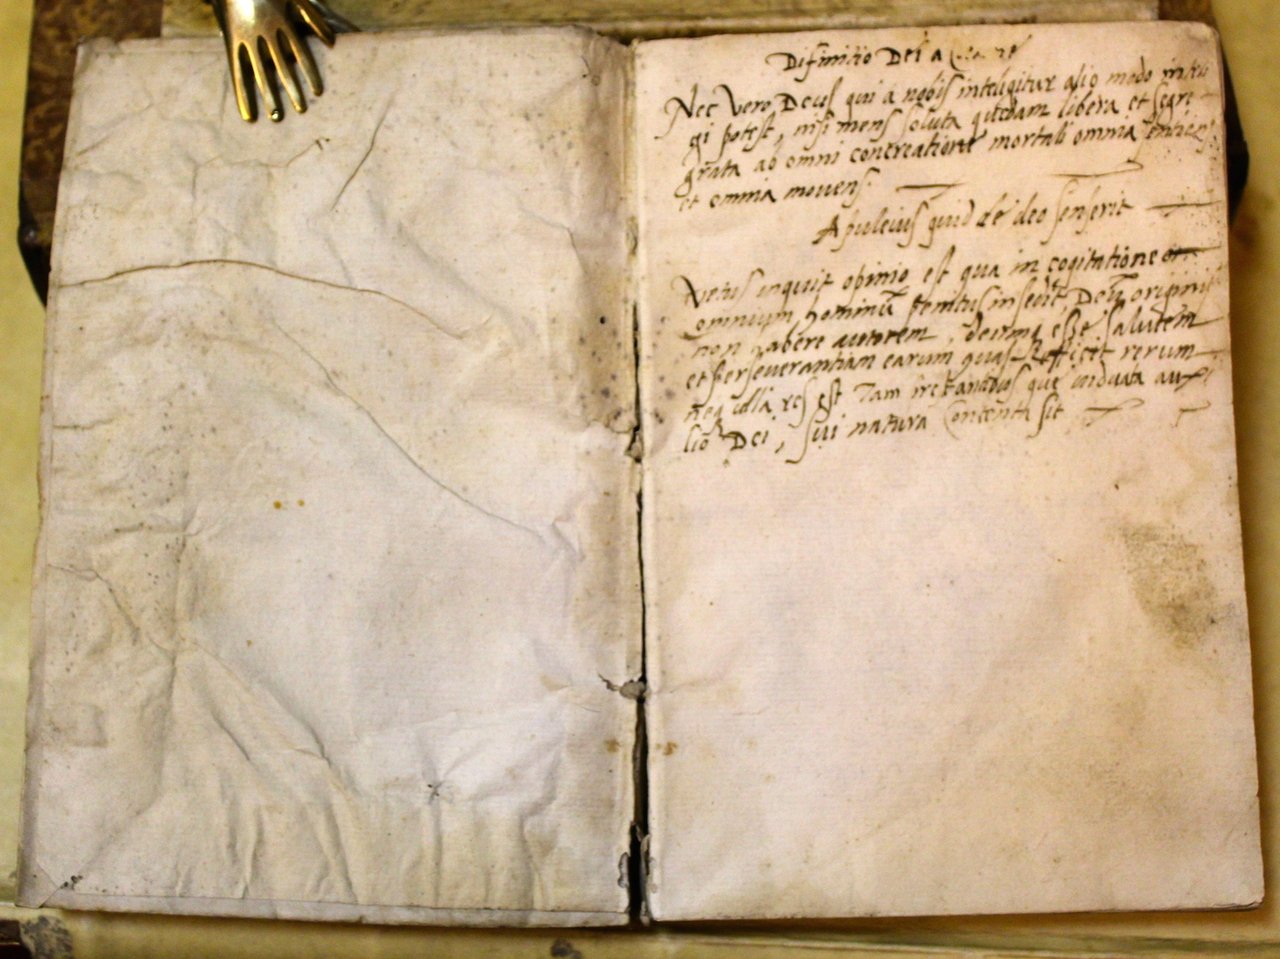 Difinitio Dei a
Nec vero Deus qui a nobis inteligitur alio modo inteli
gi potest, nisi mens soluta quedam libera et segre
grata ab omni concreatione mortali omnia
et omnia movens.
Apuleius quid de deo senserit
Vetus inquit opinio est qua in cogitatione
omnium hominū penitus insedit, Deū originis
non habere autorem, deumq esse salutem
et perseverantiam earum quas efficit rerum
neq ulla res est Tam que viduata aux
lio Dei, sui natura Contenta sit